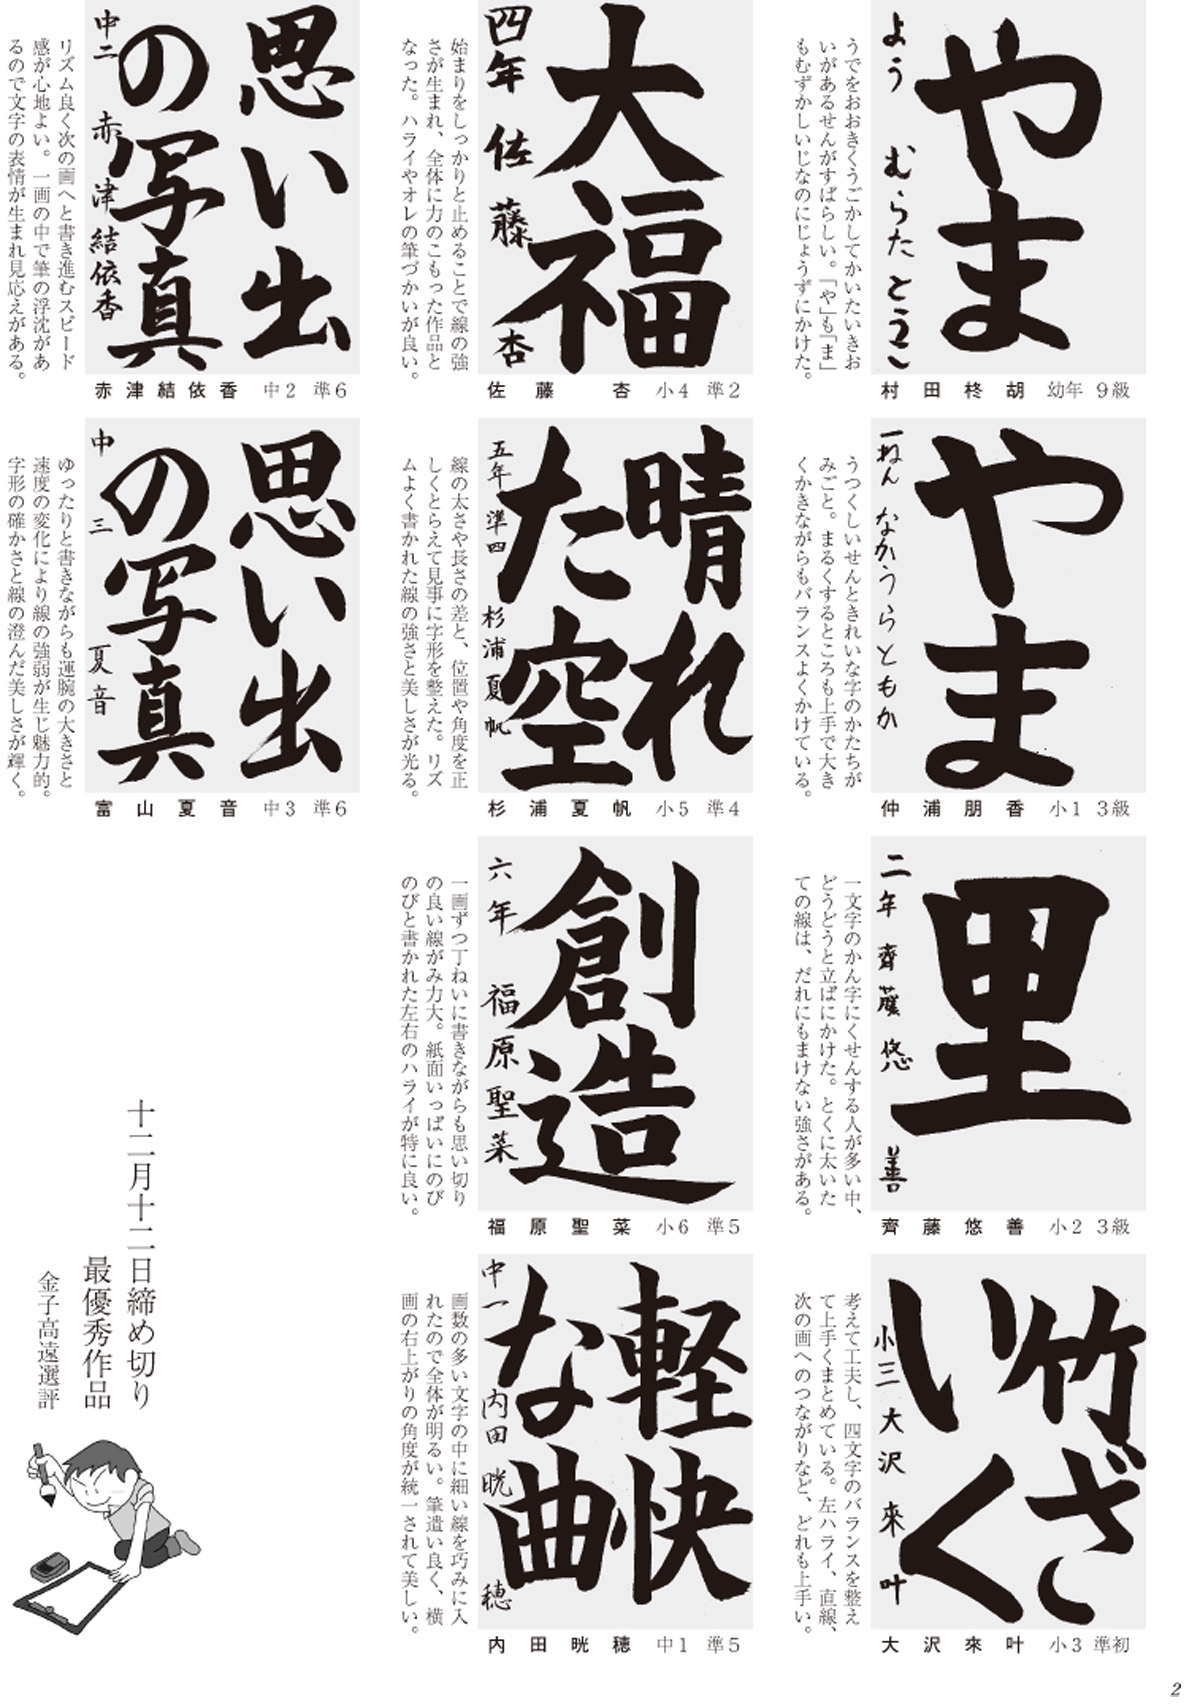 やま
よう むらたとうこ
村田柊胡 幼年 9級
うでをおおきくうごかしてかいたいきお
いがあるせんがすばらしい。「や」も「ま」
もむずかしいじなのにじょうずにかけた。
やま
一ねん なかうらともか
仲浦朋香 小1 3級
うつくしいせんときれいな字のかたちが
みごと。まるくするところも上手で大き
くかきながらもバランスよくかけている。
里
二年 齊藤悠善
齊藤悠善 小2 3級
一文字のかん字にくせんする人が多い中、
どうどうと立ぱにかけた。とくに太いた
ての線は、だれにもまけない強さがある。
竹ざ
いく
小三 大沢來叶
大沢來叶 小3 準初
考えて工夫し、四文字のバランスを整え
て上手くまとめている。左ハライ、直線、
次の画へのつながりなど、どれも上手い。
大福
四年 佐藤杏
佐藤杏 小4 準2
始まりをしっかりと止めることで線の強
さが生まれ、全体に力のこもった作品と
なった。ハライやオレの筆づかいが良い。
晴れ
た空
五年 準四 杉浦夏帆
杉浦夏帆 小5 準4
線の太さや長さの差と、位置や角度を正
しくとらえて見事に字形を整えた。リズ
ムよく書かれた線の強さと美しさが光る。
創造
六年 福原聖菜
福原聖菜 小6 準5
一画ずつ丁ねいに書きながらも思い切り
の良い線がみ力大。紙面いっぱいにのび
のびと書かれた左右のハライが特に良い。
軽快
な曲
中一 内田晄穂
内田晄穂 中1 準5
画数の多い文字の中に細い線を巧みに入
れたので全体が明るい。筆遣い良く、横
画の右上がりの角度が統一されて美しい。
思い出
の写真
中二 赤津結依香
赤津結依香 中2 準6
リズム良く次の画へと書き進むスピード
感が心地よい。一画の中で筆の浮沈があ
るので文字の表情が生まれ見応えがある。
思い出
の写真
中三 夏音
富山夏音 中3 準6
ゆったりと書きながらも運腕の大きさと
速度の変化により線の強弱が生じ魅力的。
字形の確かさと線の澄んだ美しさが輝く。
十二月十二日締め切り
最優秀作品
金子高遠選評
2